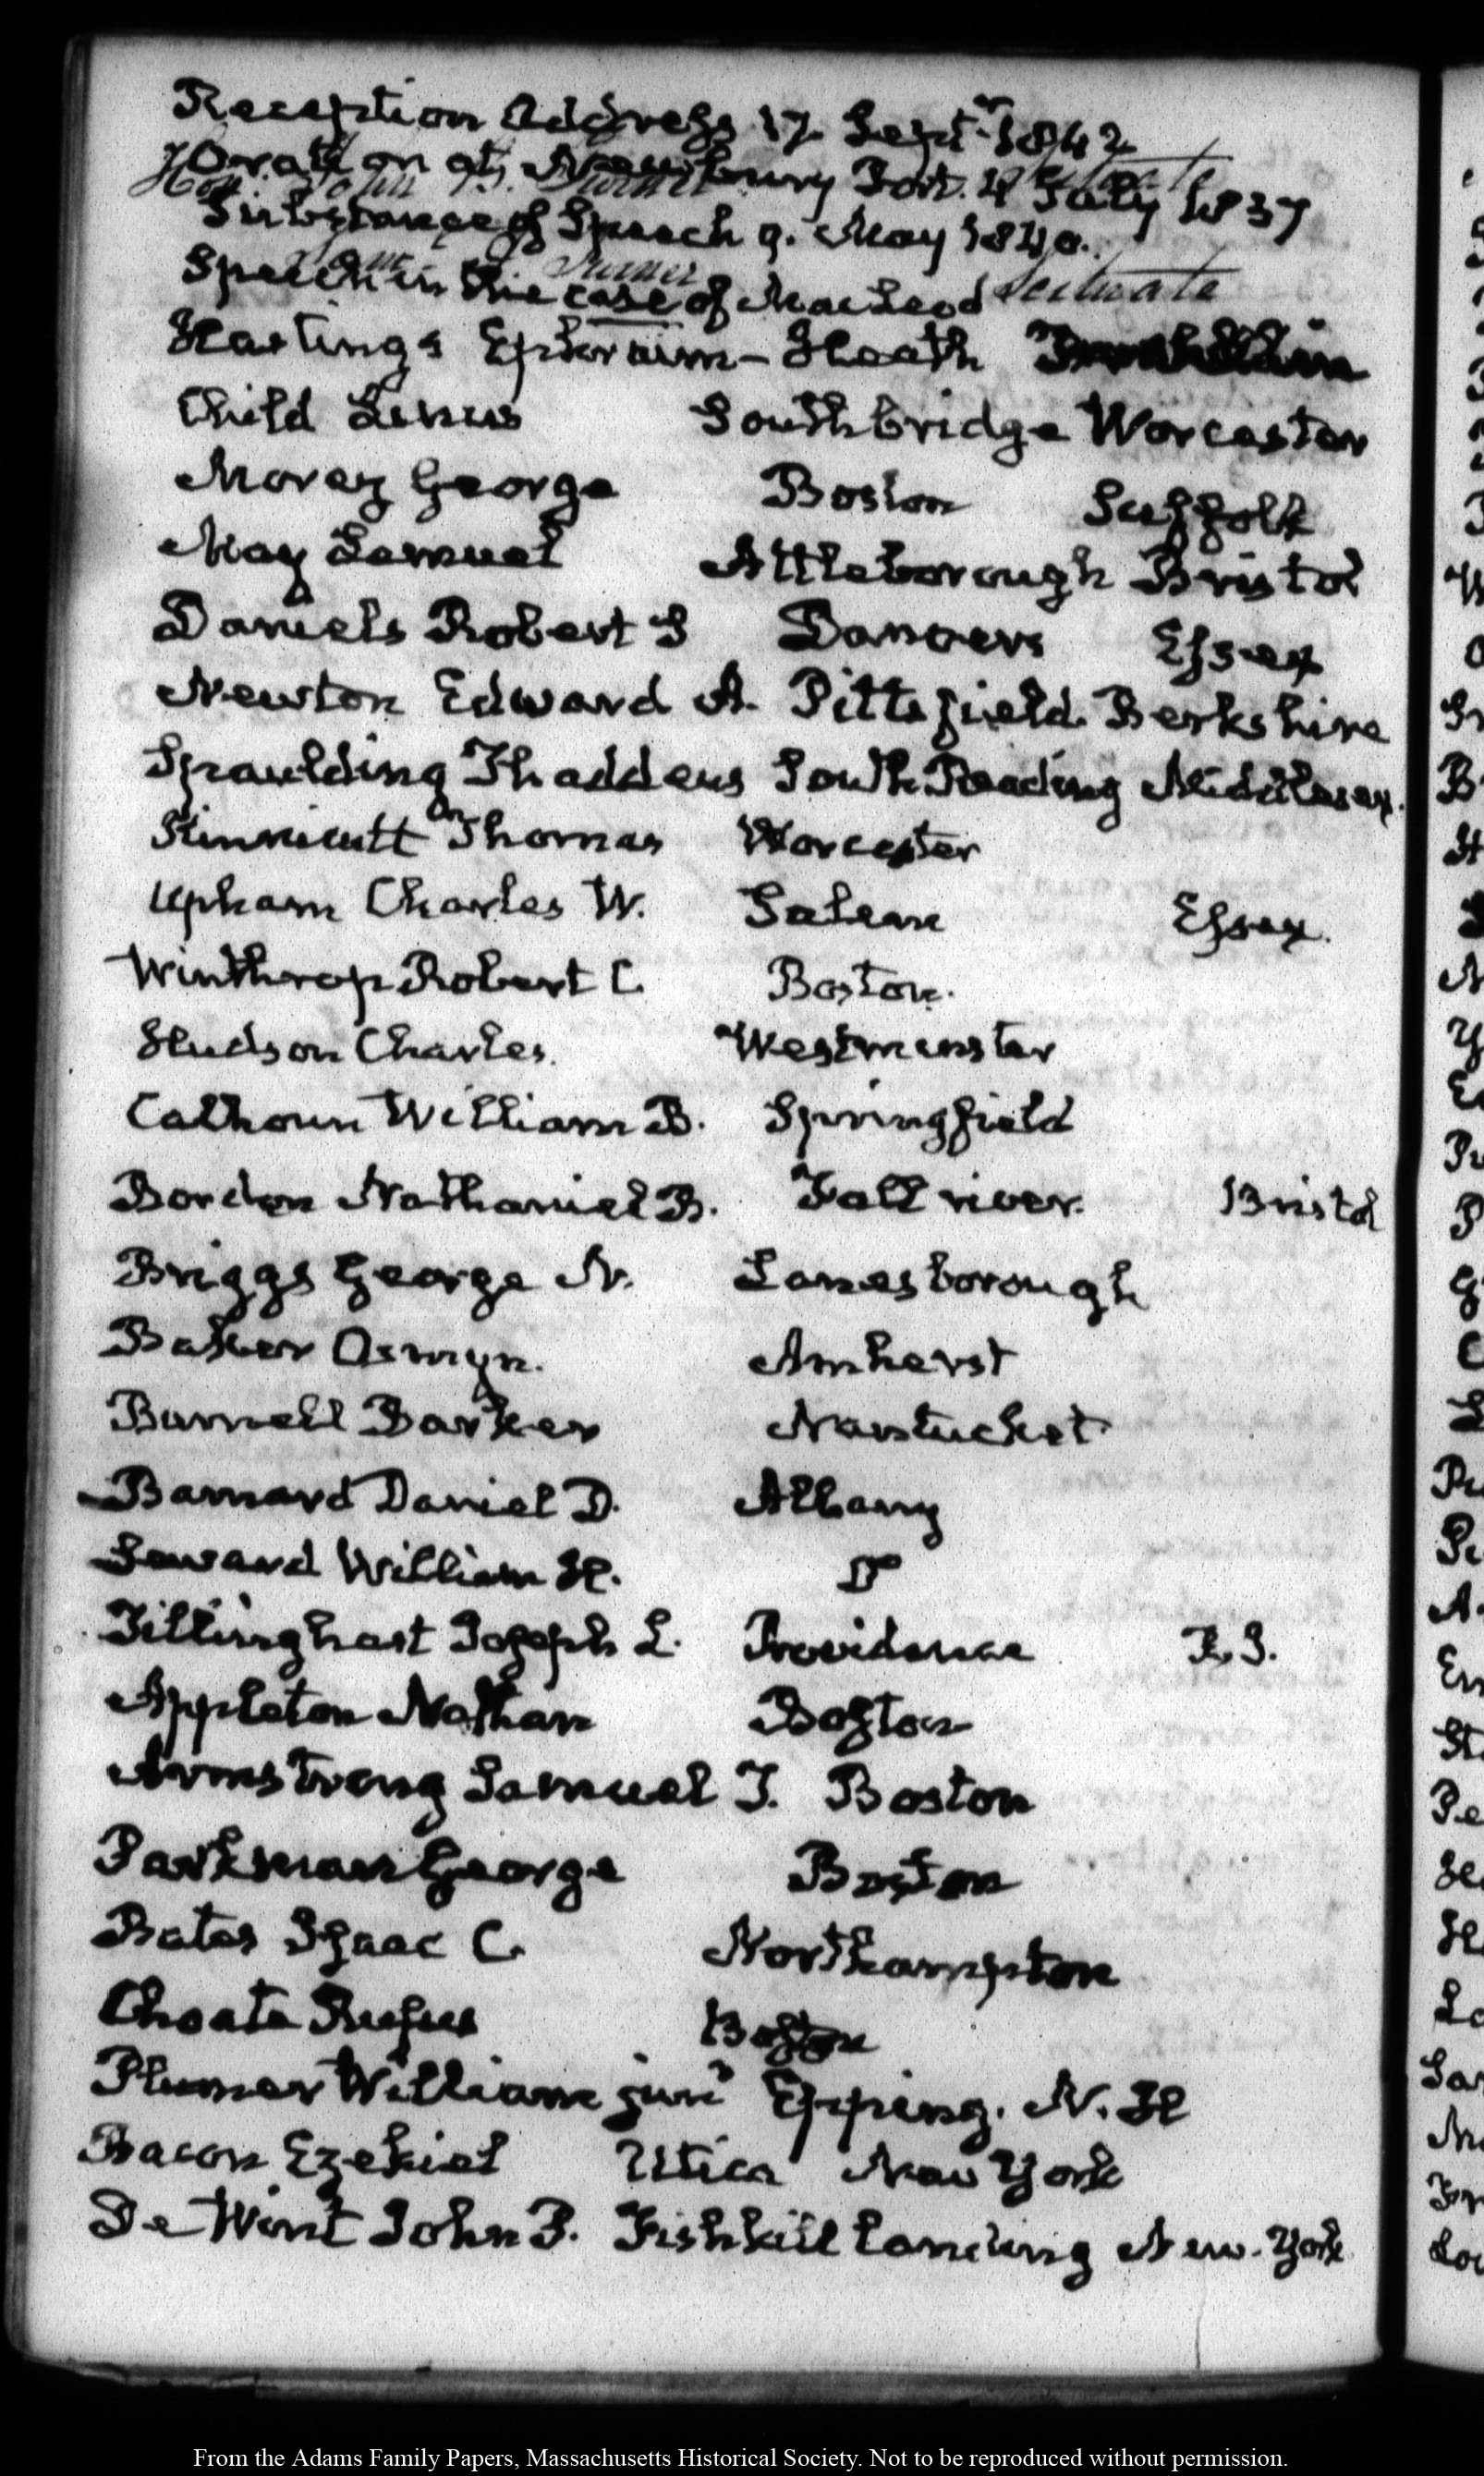 Reception Address 17 Septr 1842
Oration at Newbury Port. 4 July 1837
Hon. John B. Turner Scituate
Substance of Speech 9. May 1840.
Turner Scituate
Speech in the case of MacLeod
Hastings Ephraim - Heath
Child Linus Southbridge Worcester
Morey George Boston Suffolk
May Lemuel Attleborough Bristol
Daniels Robert S Danvers Essex
Newton Edward A. Pittsfield Berkshire
Spaulding Thaddeus South Reading Middlesex.
Kinnicutt Thomas Worcester
Upham Charles W. Salem Essex.
Winthrop Robert C Boston.
Hudson Charles. Westminster
Calhoun William B. Springfield
Borden Nathaniel B. Fall river. Bristol
Briggs George N. Lanesborough
Baker Osmyn. Amherst
Burnell Barker Nantucket
Barnard Daniel D. Albany
Seward William H. Do
Tillinghast Joseph L. Providence R.I.
Appleton Nathan Boston
Armstrong Samuel T. Boston
Parkman George Boston
Bates Isaac C. Northampton
Choate Rufus Boston
Plumer William junr Epping. N. H
Bacon Ezekiel Utica New York
De Wint John P. Fishkill Landing New-York
From the Adams Family Papers, Massachusetts Historical Society. Not to be reproduced without permission.